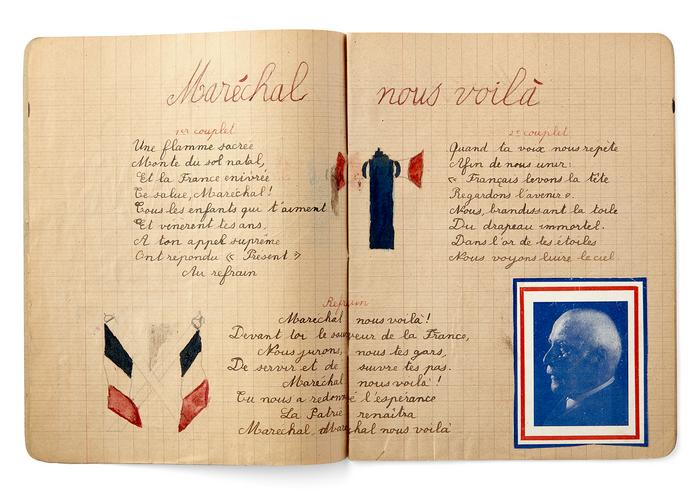 Maréchal nous voilà
1er couplet
Une flamme sacrée
Monte du sol natal,
Et la France enivrée
Te salue, Maréchal!
Tous les enfants qui t'aiment
Et vénèrent tes ans,
A ton appel suprême
Ont repondu « Présent »
Au refrain
2e couplet
Quand ta voix nous repète
Afin de nous unir:
« Français levons la tête
Regardons l'avenir ».
Nous, brandissant la toile
Du drapeau immortel.
Dans l'or de tes étoiles
Nous voyons luire le ciel
Refrain
Maréchal nous voilà!
Devant toi le sauveur de la France,
Nous jurons, nous tes gars,
De servir et de suivre tes pas.
Maréchal nous voilà!
Tu nous a redonné l'espérance
La Patrie renaîtra
Maréchal, Maréchal nous voilà